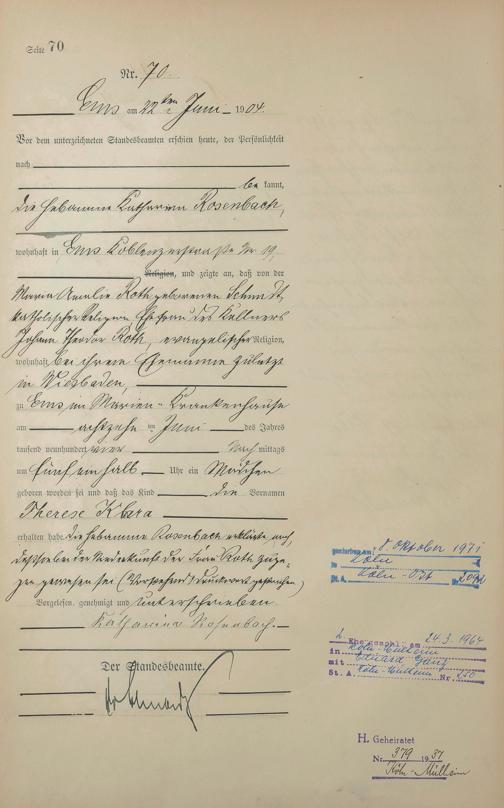 Seite 70
Nr. 70.
Ems am 22ten Juni 1904.
Vor dem unterzeichneten Standesbeamten erschien heute, der Persönlichkeit
nach
be kannt,
die Hebamme Katharina Rosenbach,
wohnhaft in Ems Koblenzerstraße Nr 19,
Religion, und zeigte an, daß von der
Maria Amalie Roth geborenen Schmidt,
katholischer Religion Ehefrau des Kellners
Johann Theodor Roth, evangelischer Religion,
wohnhaft bei ihrem Ehemanne zuletzt
in Wiesbaden,
zu Ems im Marien-Krankenhause
am achtzehn ten Juni des Jahres
tausend neunhundert vier Nach mittags
um fünf einhalb Uhr ein Mädchen
geboren worden sei und daß das Kind die Vornamen
Therese Klara
erhalten habe. Die Hebamme Rosenbach erklärte noch,
daß sie bei der Niederkunft der Frau Roth zuge-
gen gewesen sei (Vorstehend Druckwort gestrichen)
Vorgelesen, genehmigt und unterschrieben
Katharina Rosenbach.
Der Standesbeamte.
gestorben am: 8. Oktober 1971
in Köln
St. A. Köln-Ost Nr.
2. Eheschl. am 24.3.1964
in Köln-Mülheim
mit Eduard
St. A. Köln-Mülheim Nr. 250
H. Geheiratet
Nr. 379 1931
Köln-Mülheim